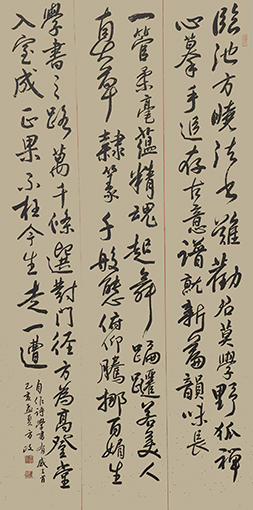 臨池方曉法书難勸君莫學野狐禪
心摹手追存古意譜就新篇韻味長
一管柔毫蘊精魂起舞蹁躚若美人
真草隸篆千般態俯仰騰挪百媚生
學書之路萬千條選對門徑方為高登堂
入室成正果不枉今生走一遭
自作詩學書有感三首
己亥孟夏方政